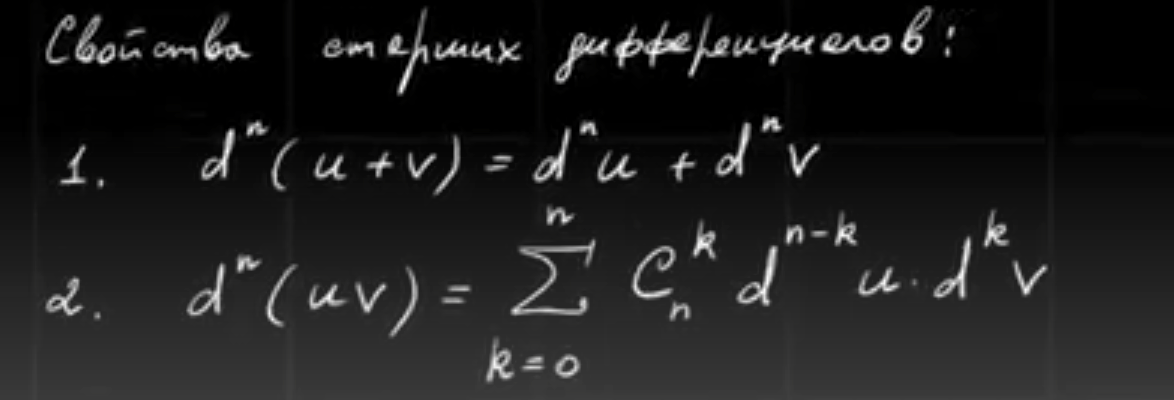 Свойства старших дифференциалов:
1. dⁿ(u+v) = dⁿu + dⁿv
2. dⁿ(uv) = ∑ₖ₌₀ⁿ Cₙᵏ dⁿ⁻ᵏu · dᵏv